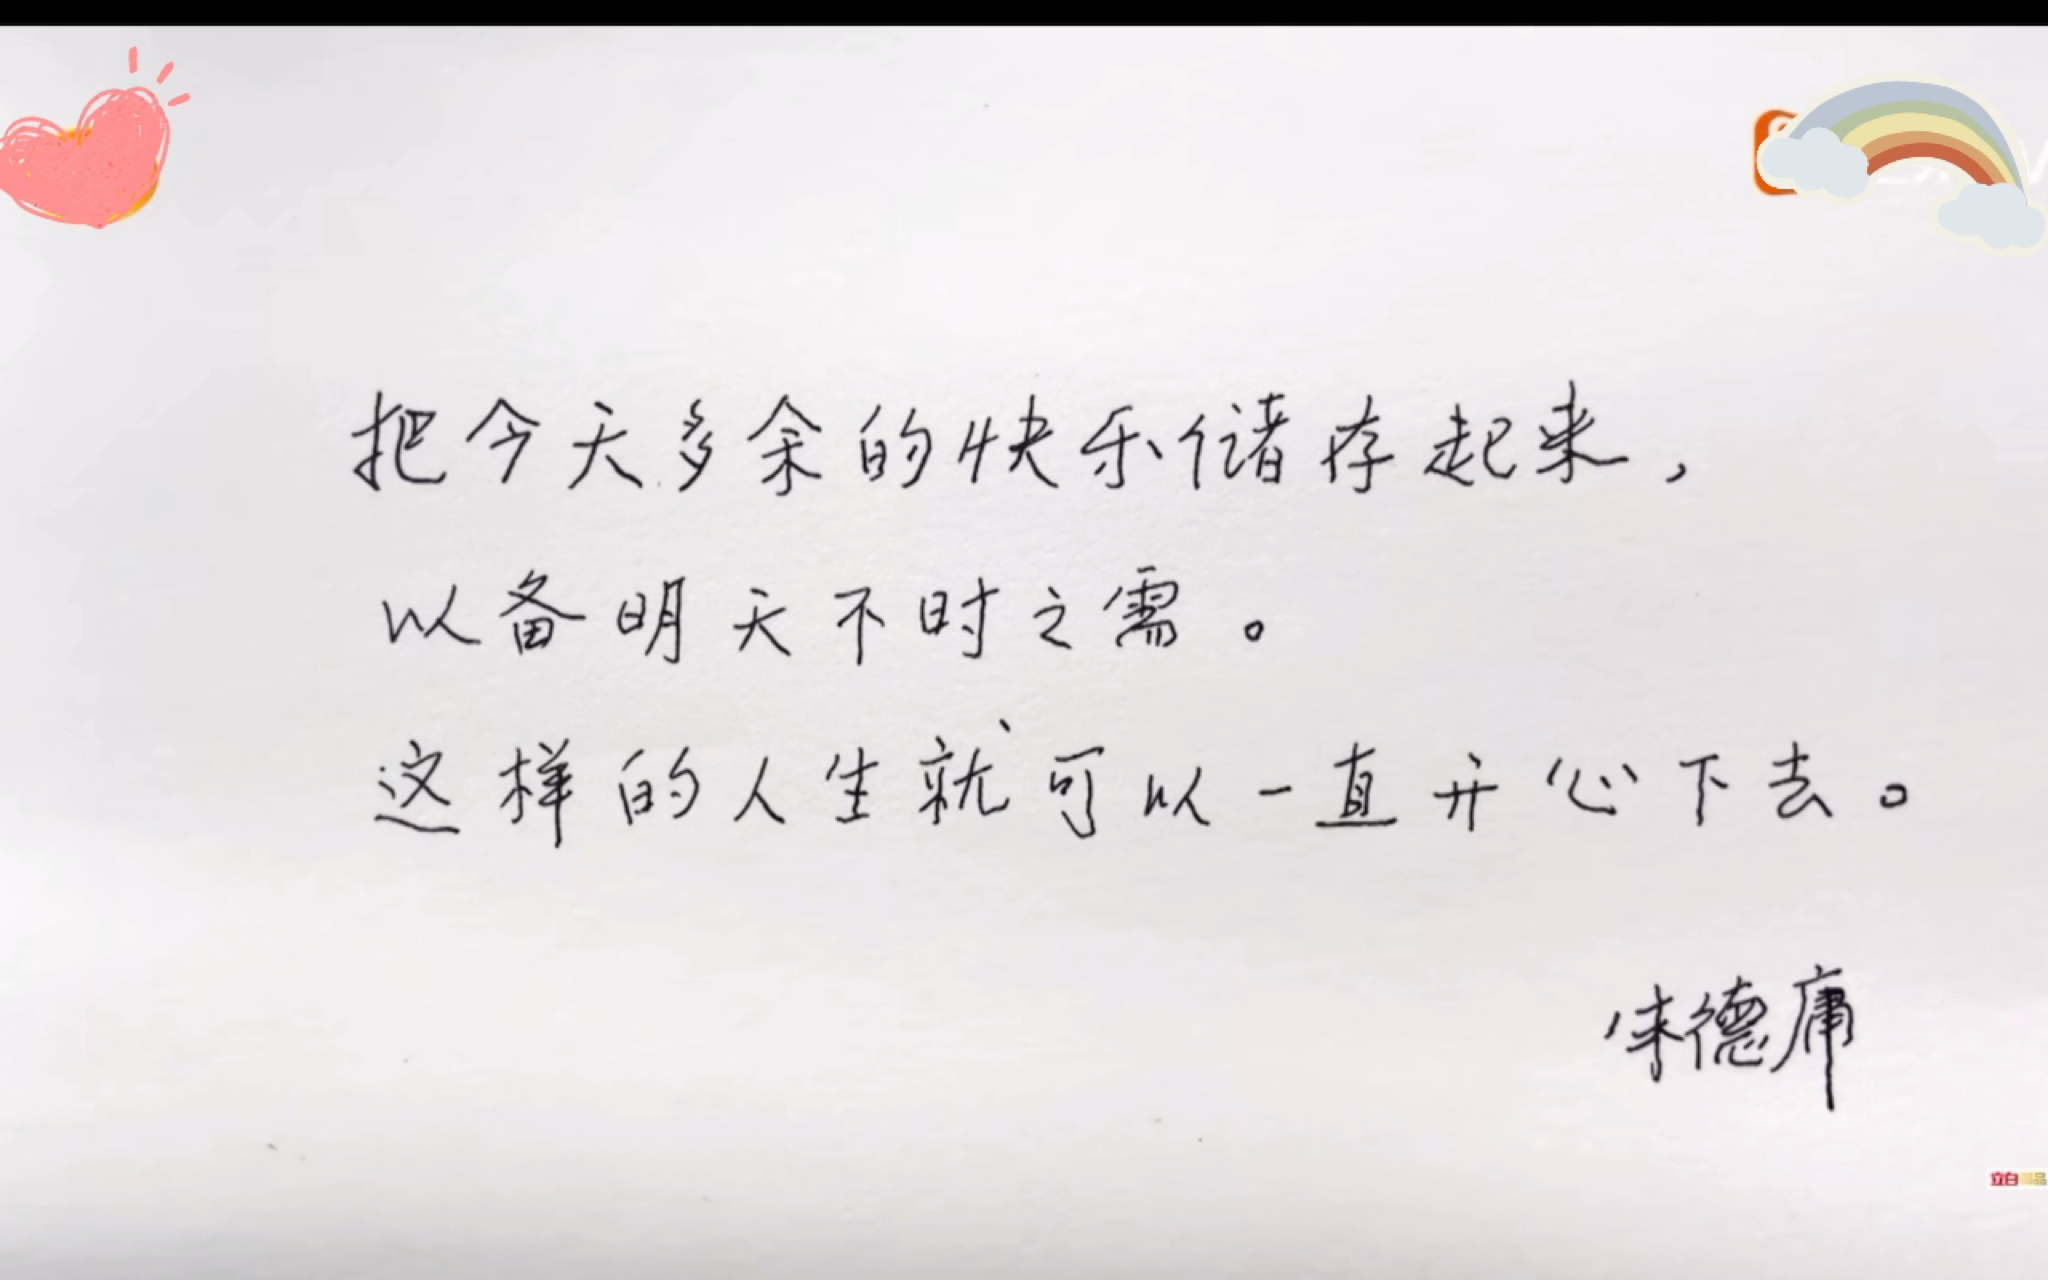 把今天多余的快乐储存起来，
以备明天不时之需。
这样的人生就可以一直开心下去。
朱德庸
立白